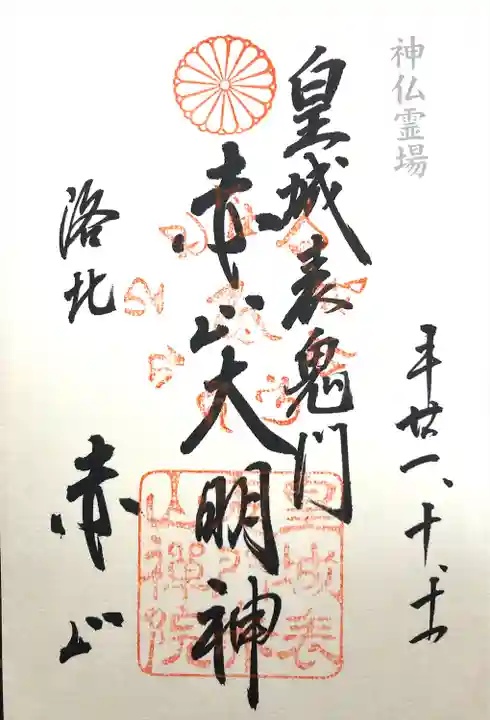 神仏霊場
平廿一、十、
皇城表鬼門
赤山大明神
洛北
赤山
皇城表
山禪院